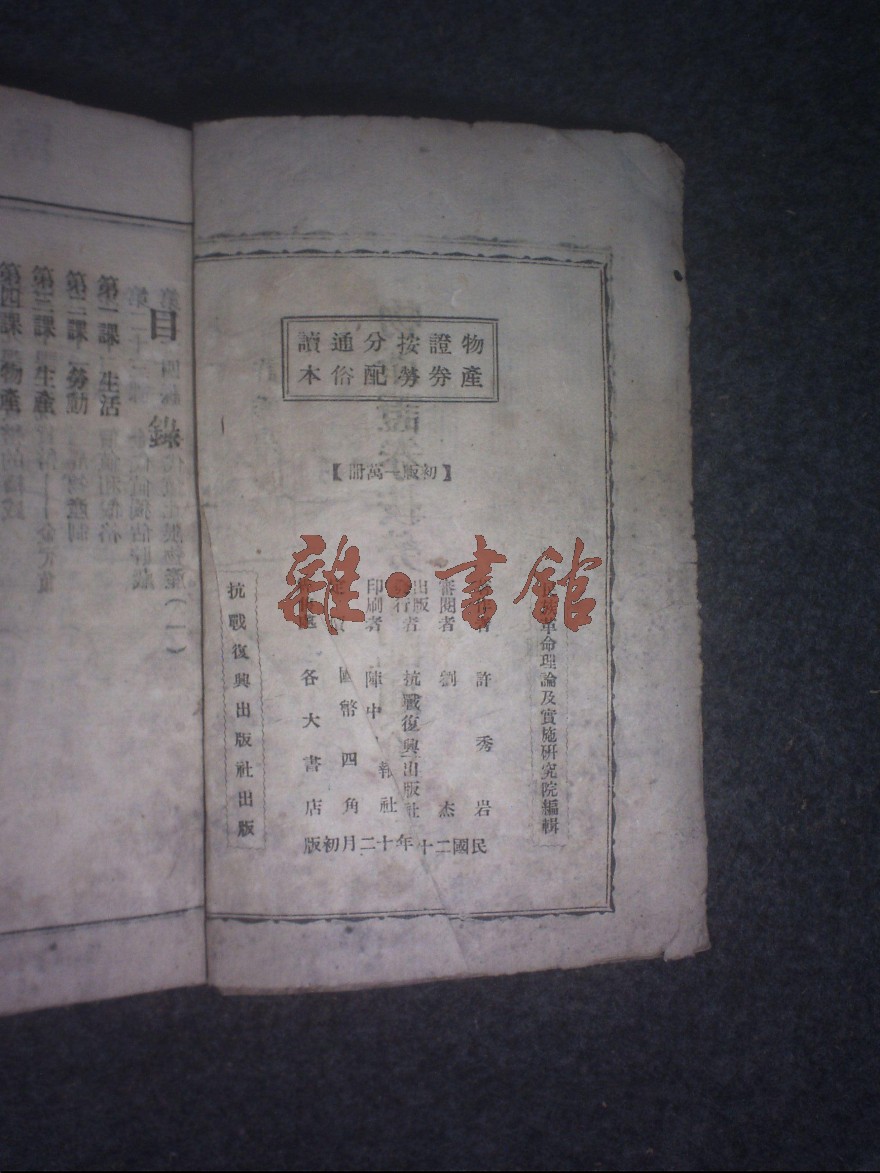 物產證券按勞分配通俗讀本
【初版一萬冊】
革命理論及實施研究院編輯
者 許秀岩
審閱者 劉杰
出版者
行者 抗戰復興出版社
印刷者 陣中報社
國幣四角
各大書店
民國二十年十二月初版
抗戰復興出版社出版
雜·書館
目錄
第一課 生活
第二課 勞動
第三課 生產
第四課 物產